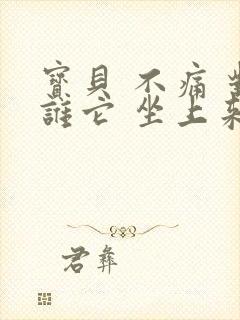 寶貝 不痛
誰它 坐上
君彝